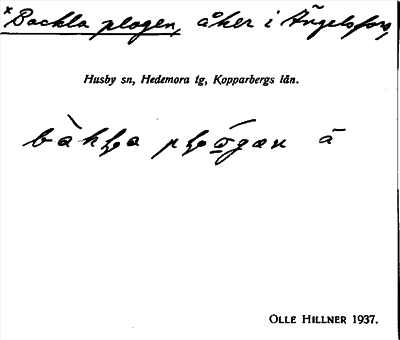 *Backla plogen, åker i Ängelsfors,
Husby sn, Hedemora tg, Kopparbergs län.
å
OLLE HILLNER 1937.